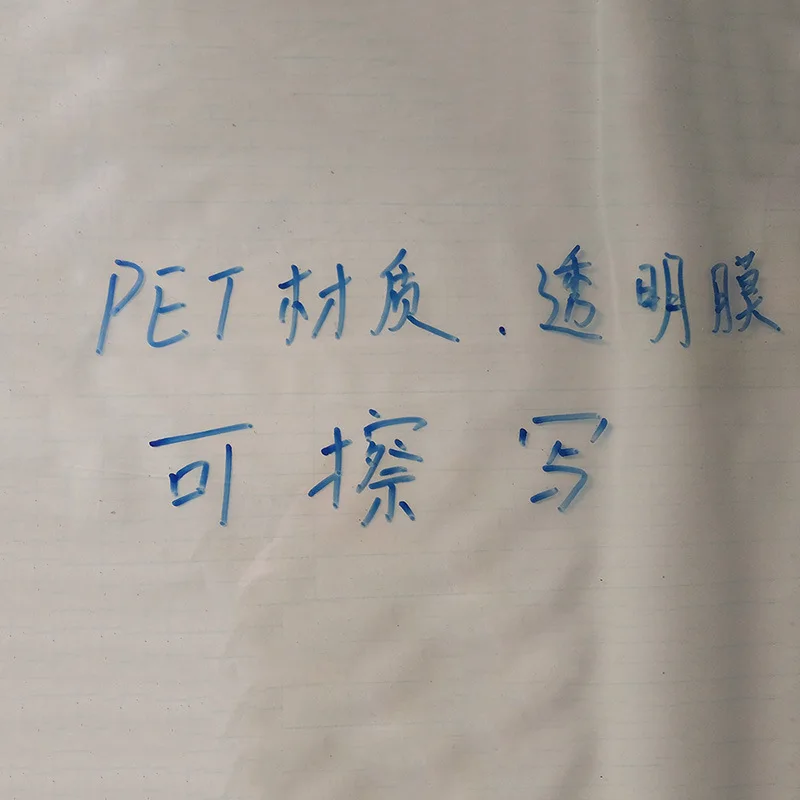 PET材质.透明膜
可擦写